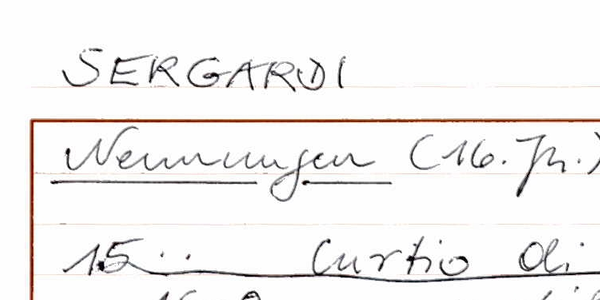 SERGARDI
Nennungen (16. Jh.)
15.. Curtio di